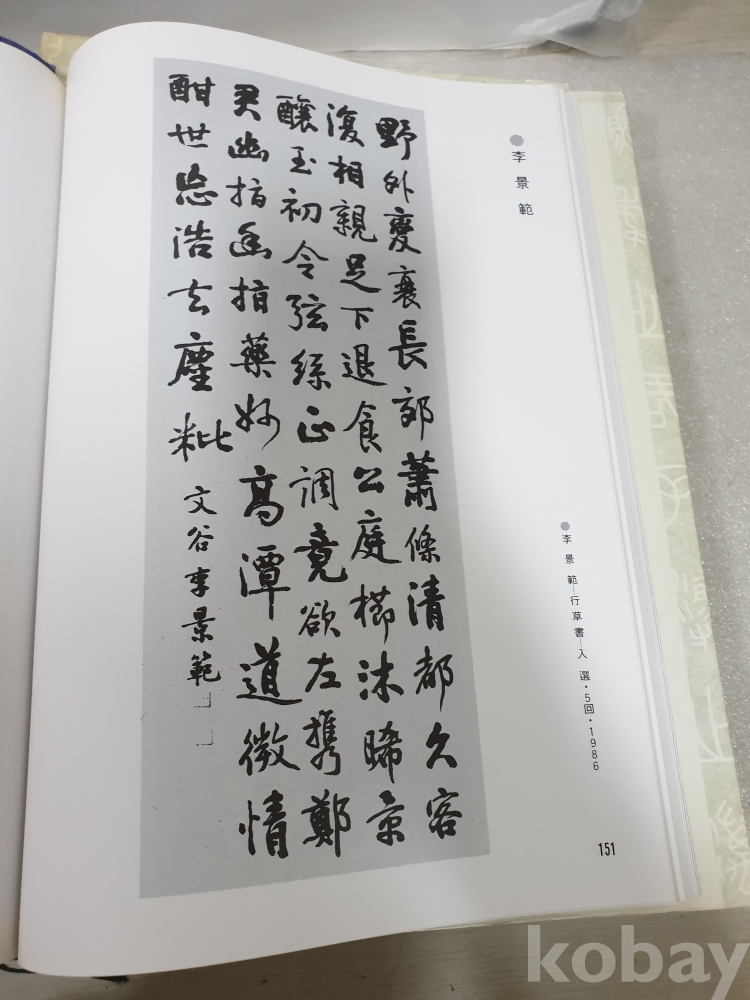 李景範
野外變衰長郊蕭條清都久客
復相親足下退食公庭櫛沐晞京
釀玉初令弦絲正調竟欲左携鄭
君幽指幽指藥妙高潭道微情
酣世忘浩去塵粃
文谷李景範
李景範—行草書—入選·5回·1986
151
kobay